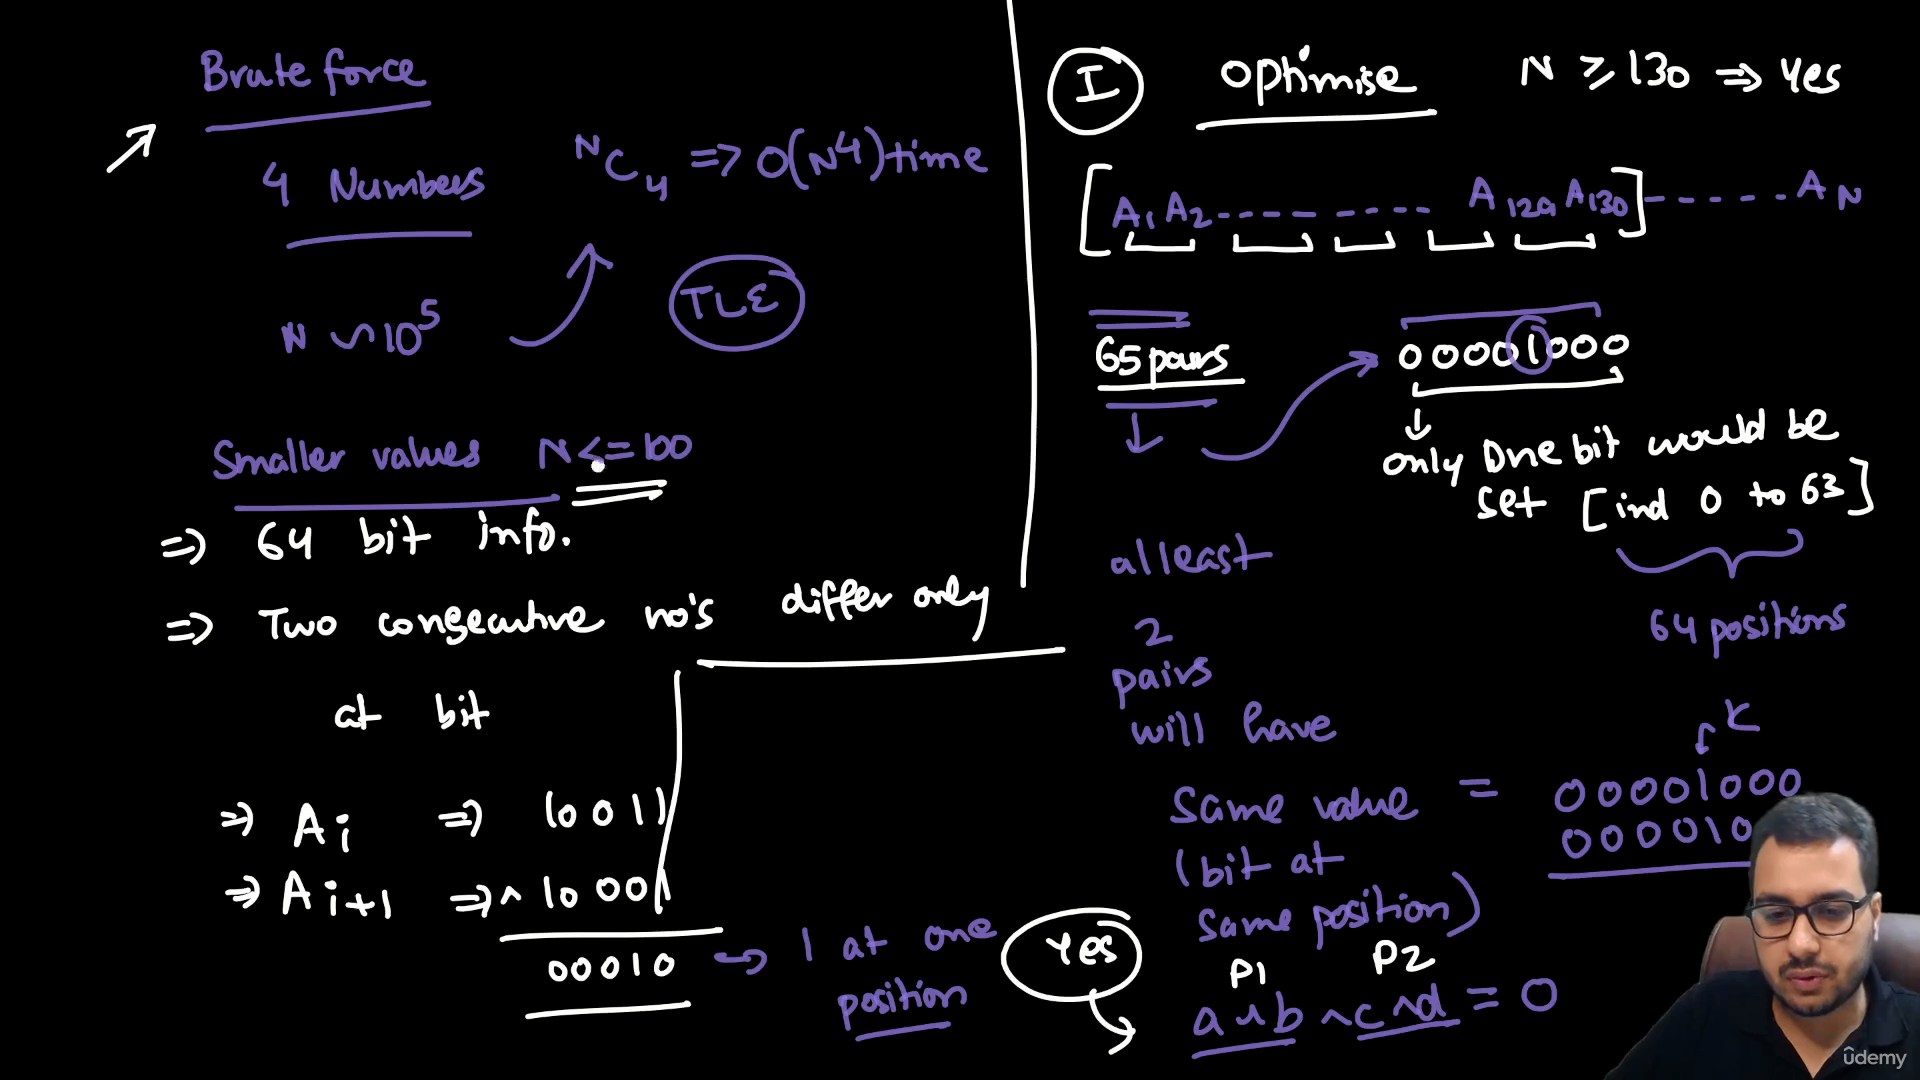 Brute force
4 Numbers
N C 4 => O(N^4) time
N ~ 10^5
TLE
Smaller values N <= 100
=> 64 bit info.
=> Two consecutive no's differ only
at bit
=> Ai => 10011
=> Ai+1 => ^ 10001
00010 -> 1 at one
position
I Optimise N ≥ 130 => Yes
[A1 A2 ---- ---- A129 A130] ------ AN
65 pairs
00001000
only One bit would be
set [ind 0 to 63]
64 positions
atleast
2
pairs
will have
Same value = 00001000
(bit at
same position)
K
000010
Yes
P1 P2
a ^ b ^ c ^ d = 0
ûdemy